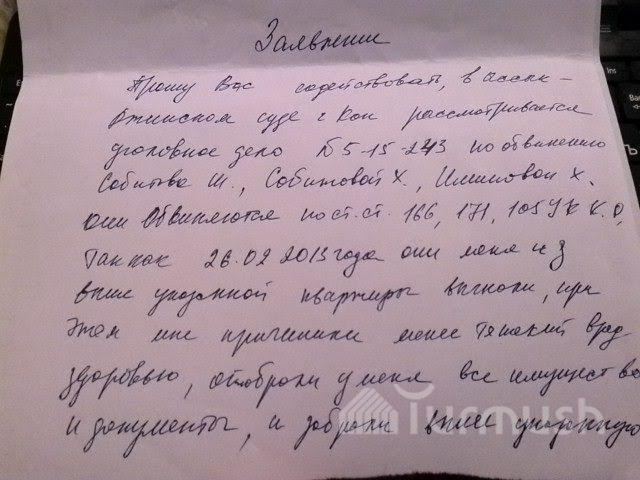 Заявление
Прошу Вас содействовать, в Ыссык-
Атинском суде г Кан рассматривается
уголовное дело №5-15-243 по обвинению
Собитова Ш., Собитовой Х., Имиповой Х.
они Обвиняются по ст.ст. 166, 171, 105 УК К.Р,
Так как 26.02 2013 года они меня из
выше указанной квартиры выгнали, при
этом мне причинили менее тяжкий вред
здоровью, отобрали у меня все имущество
и документы, и забрали выше указанную
Turmush